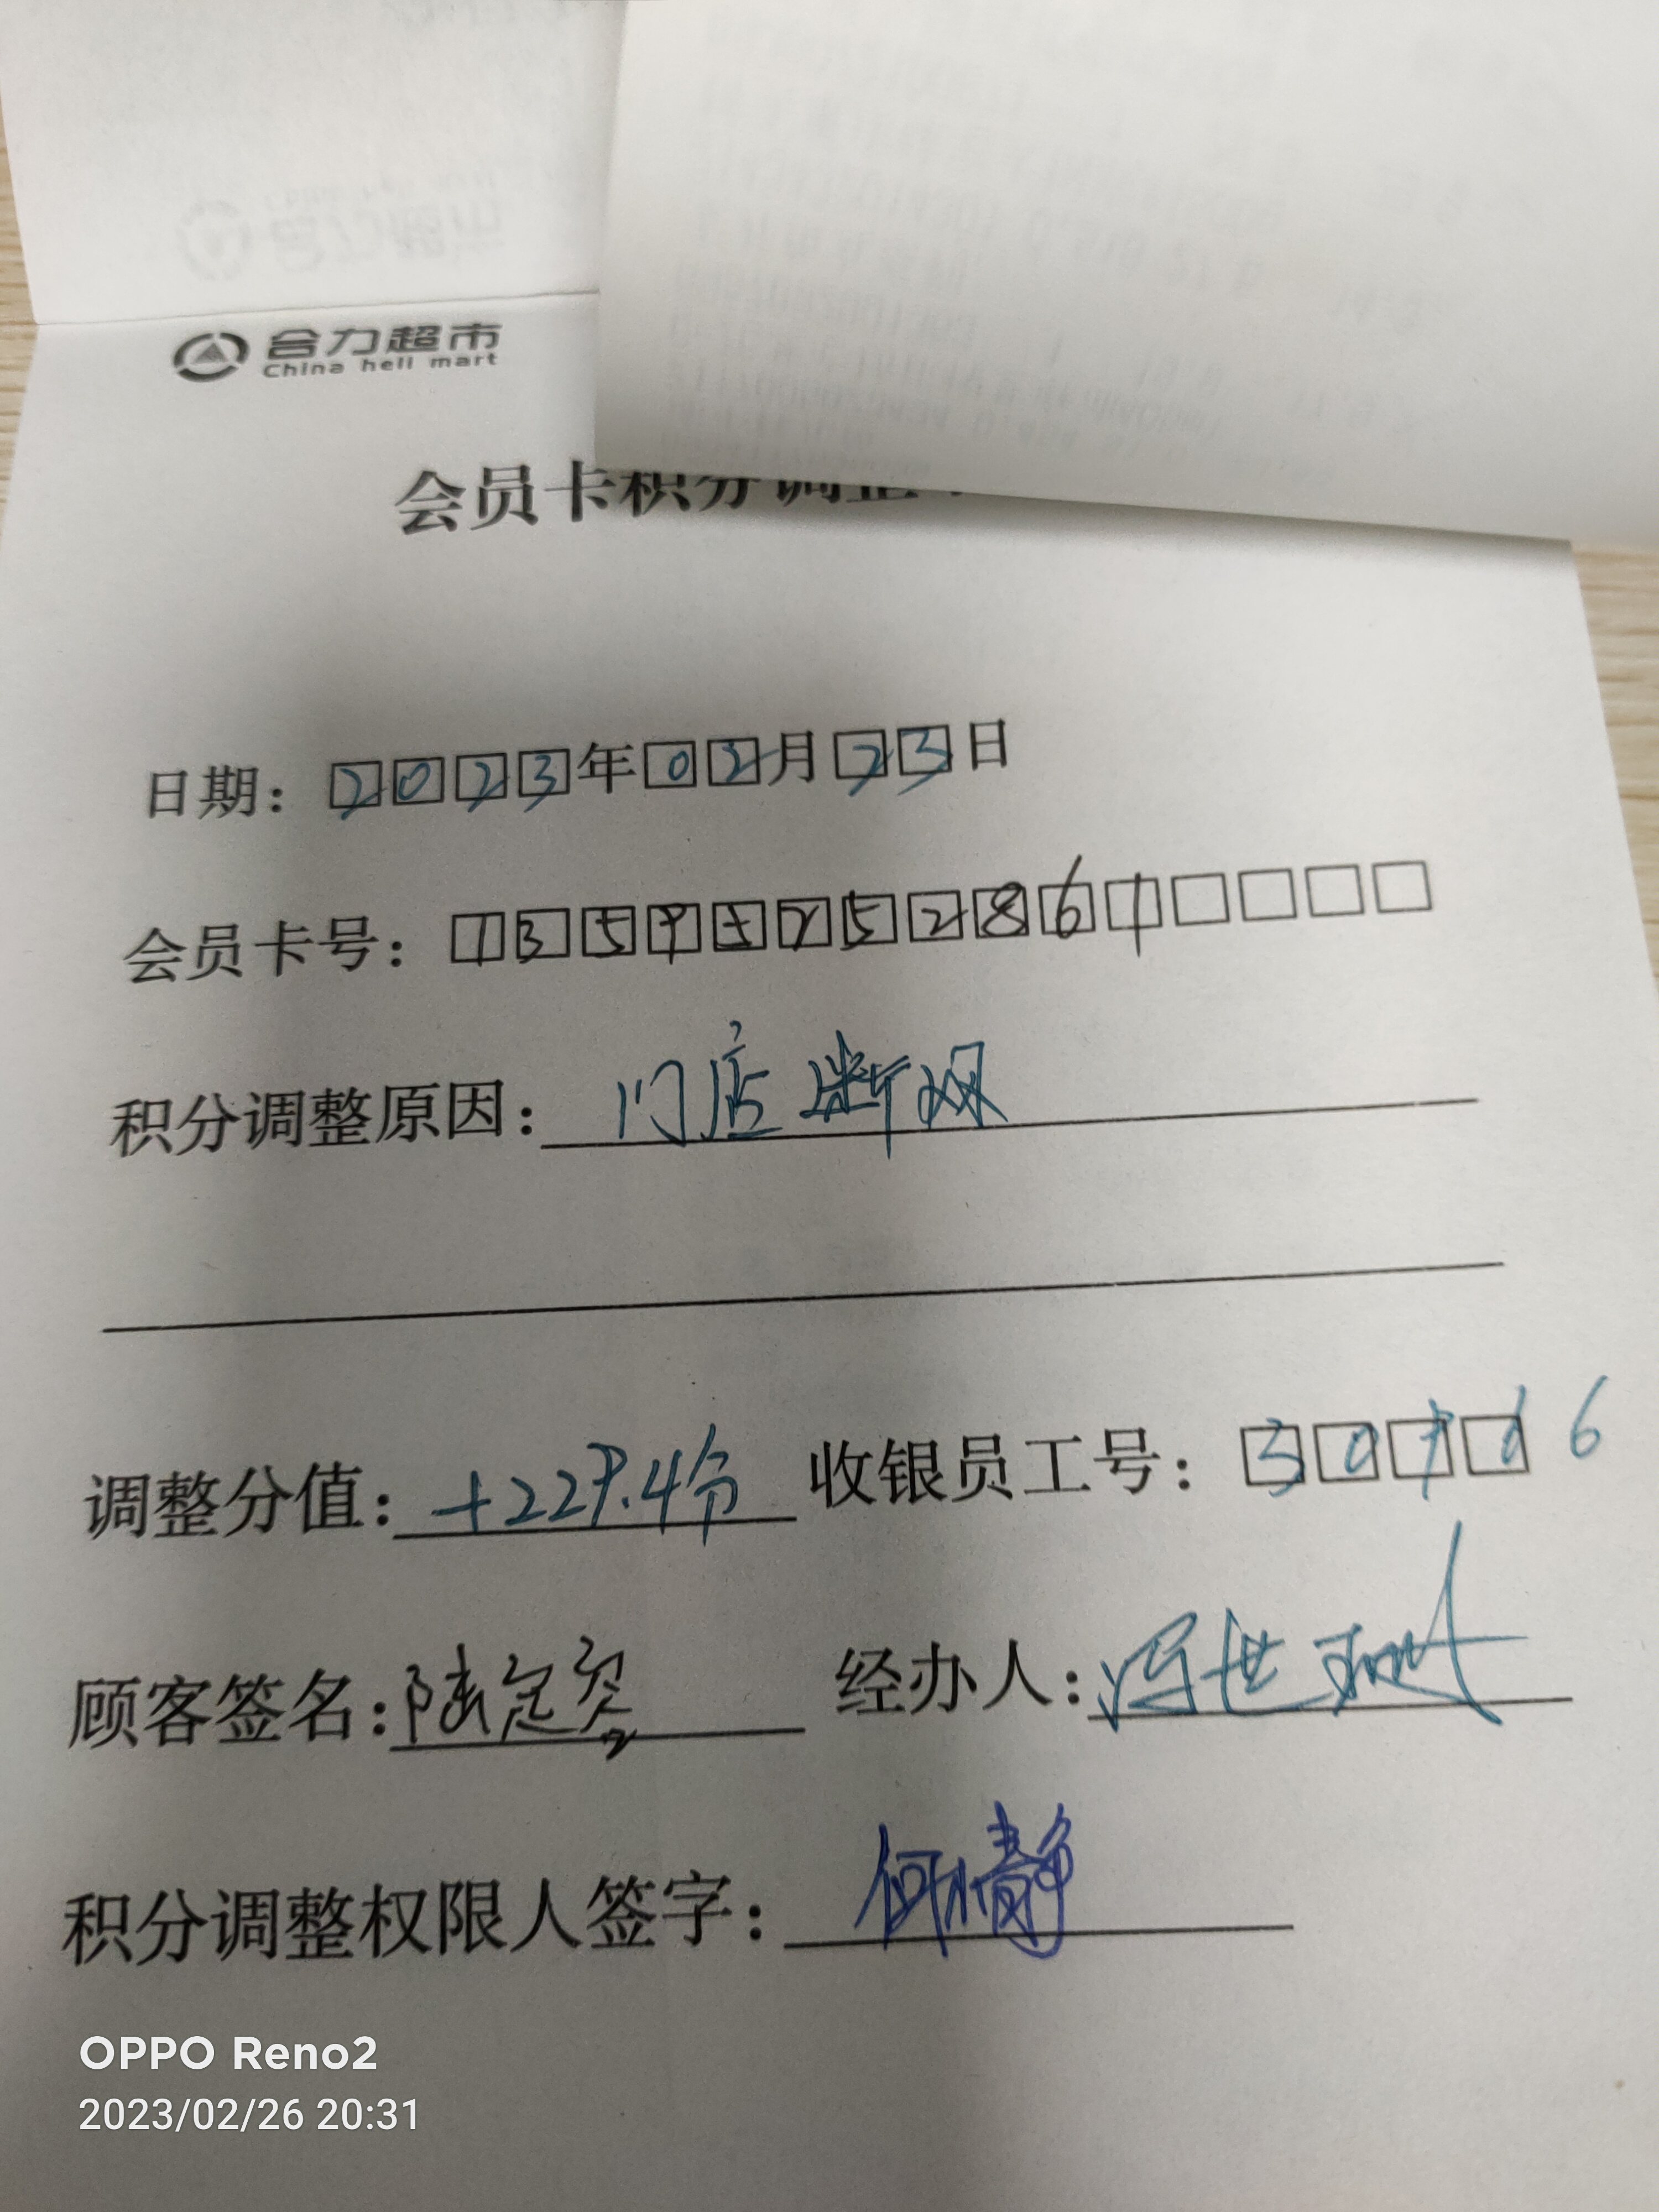 合力超市
China heli mart
会员卡积分调整
日期：2023年02月23日
会员卡号：13595752861
积分调整原因：门店断网
调整分值：+229.4分 收银员工号：30916
顾客签名：陆定 经办人：冯世
积分调整权限人签字：何倩静
OPPO Reno2
2023/02/26 20:31